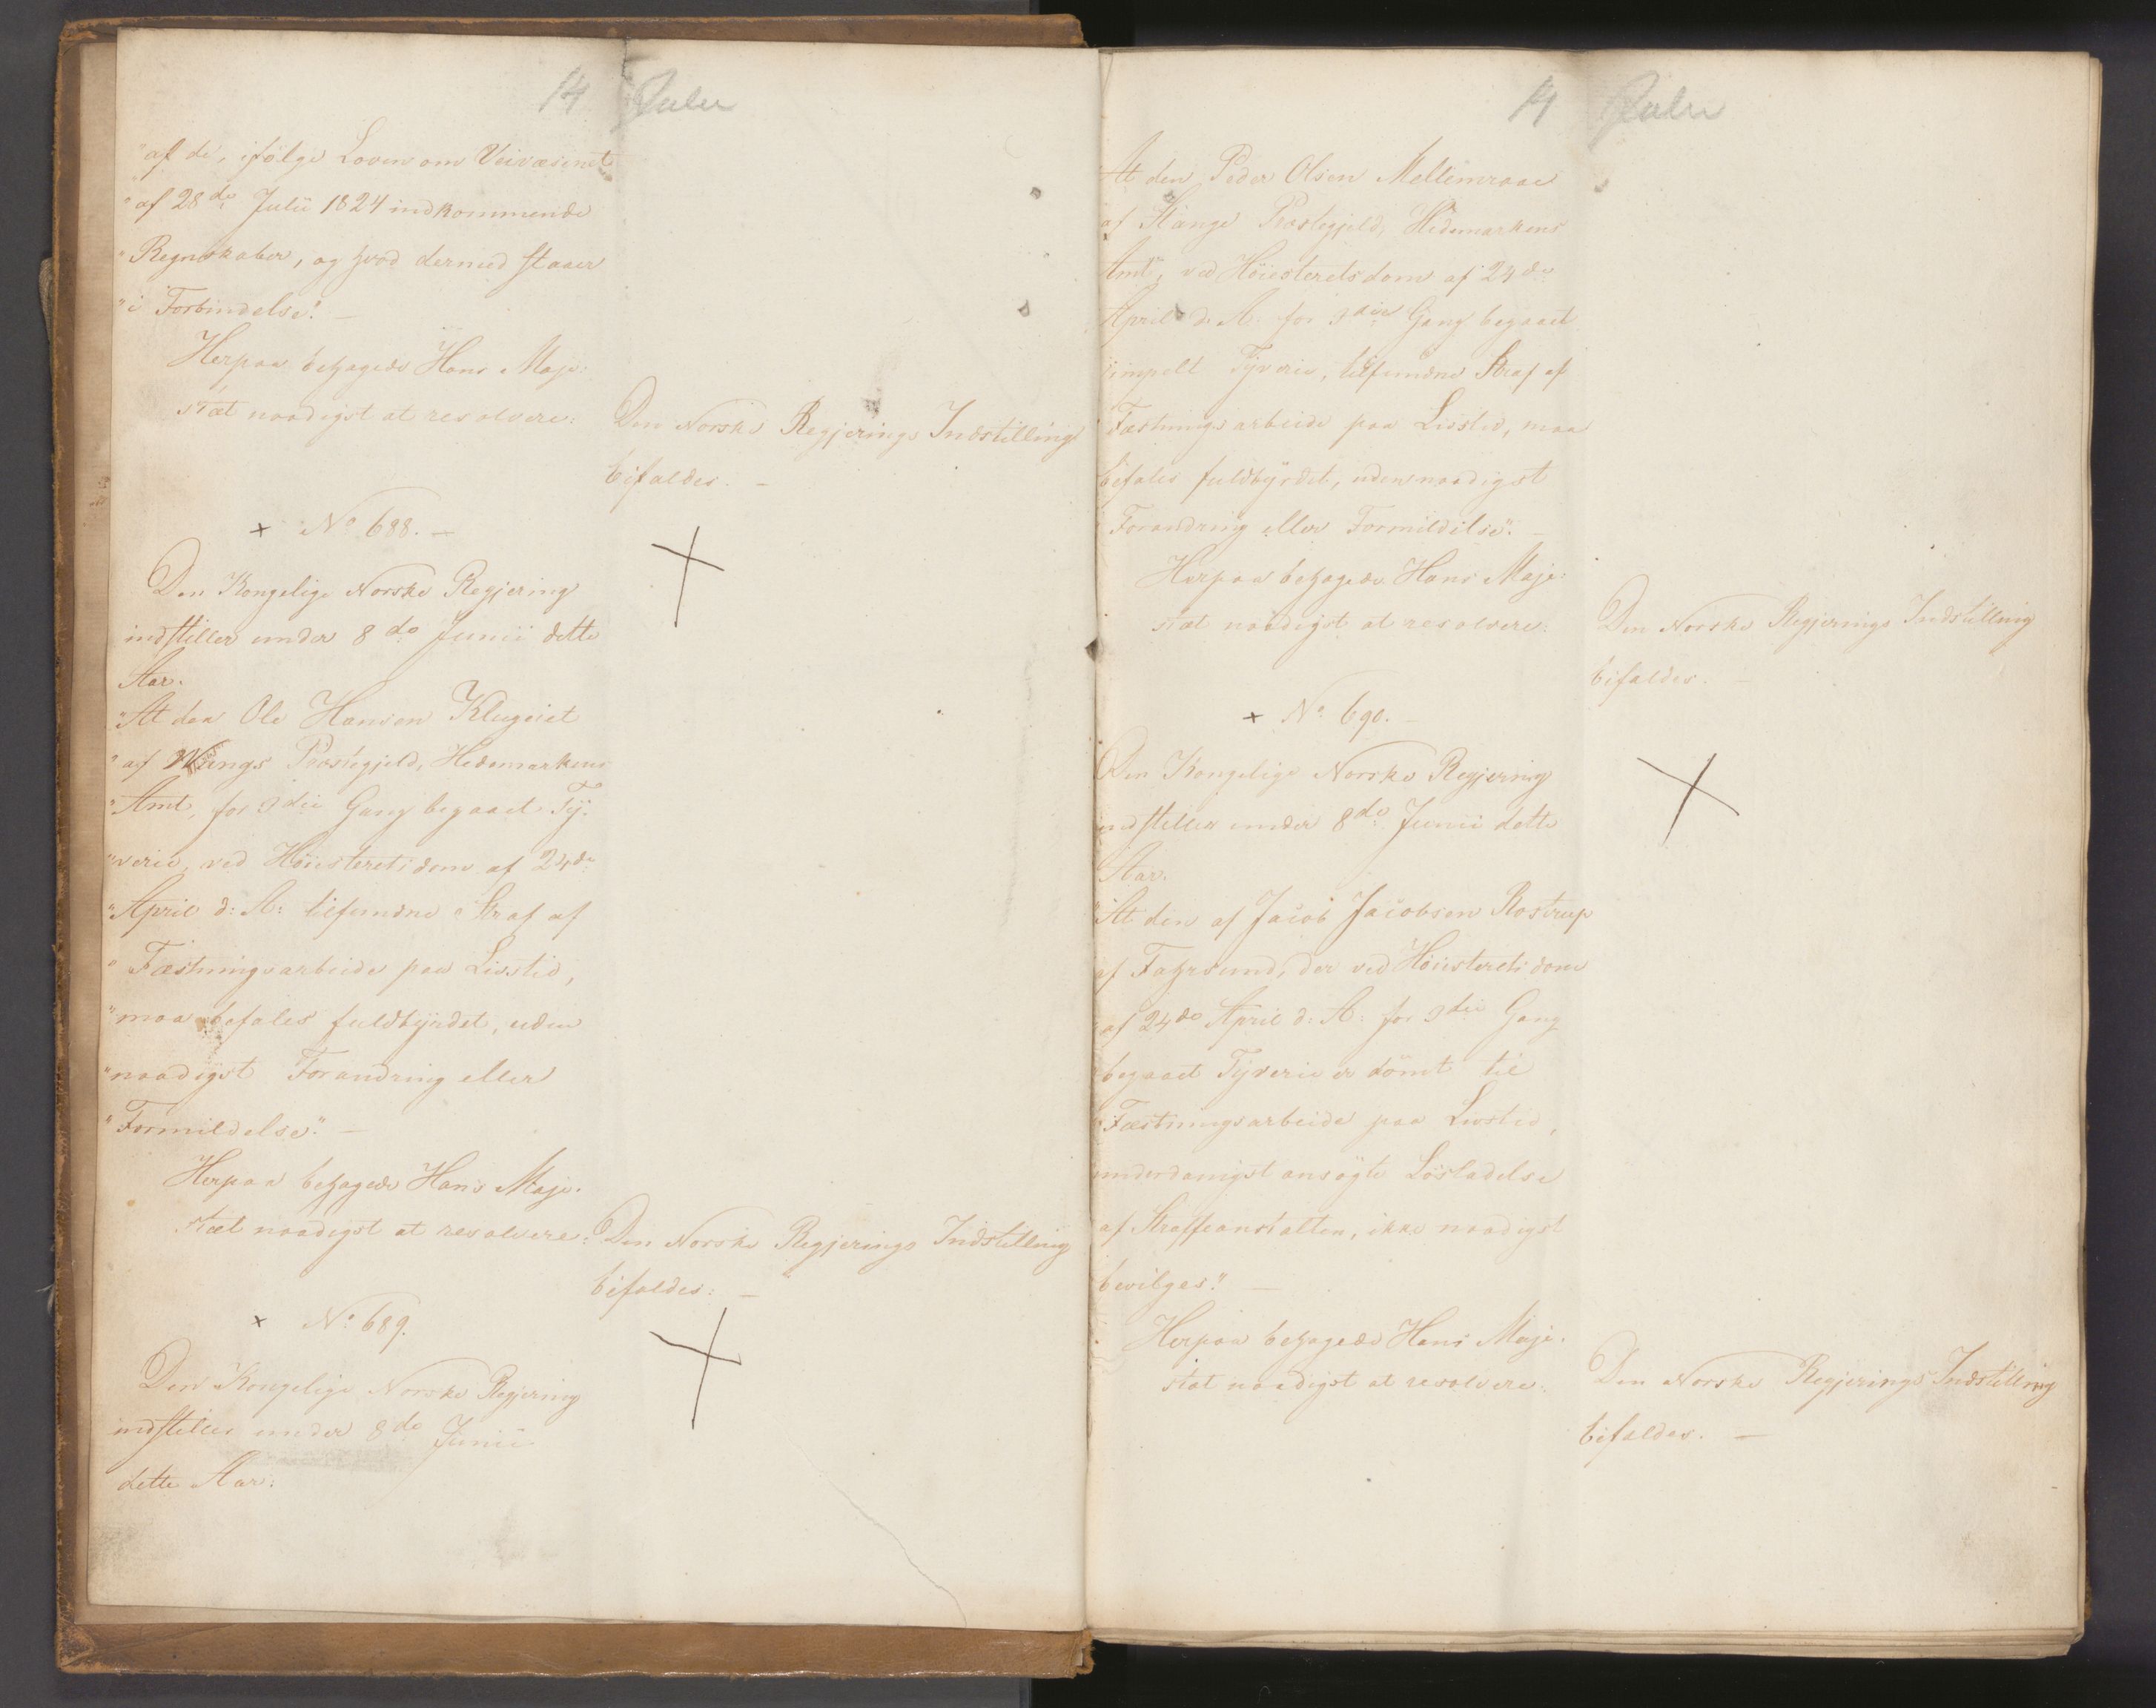 14 Julii
"af de, ifölge Loven om Veivæsenet
"af 28de Julii 1824 indkommende
"Regnskaber, og hvad dermed staaer
"i Forbindelse". —
Herpaa behagede Hans Maje-
stæt naadigst at resolvere:
Den Norske Regjerings Indstilling
bifaldes. —
+ No 688. —
Den Kongelige Norske Regjering
indstiller under 8de Junii dette
Aar.
"At den Ole Hansen Klugeiet
"af Wangs Præstegjeld, Hedemarkens
"Amt, for 3die Gang begaaet Ty-
"verie, ved Höiesteretsdom af 24de
"April d: A: tilfundne Straf af
"Fæstningsarbeide paa Livstid,
"maa befales fuldbyrdet, uden
"naadigst Forandring eller
"Formildelse". —
Herpaa behagede Hans Maje-
stæt naadigst at resolvere:
Den Norske Regjerings Indstilling
bifaldes: —
+ No 689.
Den Kongelige Norske Regjering
indstiller under 8de Junii
dette Aar:
14 Julii
At den Peder Olsen Mellemraae
af Stange Præstegjeld, Hedemarkens
Amt, ved Höiesteretsdom af 24de
April d. A. for 3die Gang begaaet
simpelt Tyverie, tilfundne Straf af
Fæstningsarbeide paa Livstid, maa
befales fuldbyrdet, uden naadigst
Forandring eller Formildelse". —
Herpaa behagede Hans Maje-
stæt naadigst at resolvere:
Den Norske Regjerings Indstilling
bifaldes. —
+ No 690. —
Den Kongelige Norske Regjering
indstiller under 8de Junii dette
Aar.
"At den af Jacob Jacobsen Rostrup
af Fahrsund, der ved Höiesteretsdom
"af 24de April d: A: for 3die Gang
begaaet Tyverie er dömt til
"Fæstningsarbeide paa Livstid,
underdanigst ansögte Lösladelse
af Straffeanstalten, ikke naadigst
bevilges". —
Herpaa behagede Hans Maje-
stæt naadigst at resolvere:
Den Norske Regjerings Indstilling
bifaldes. —